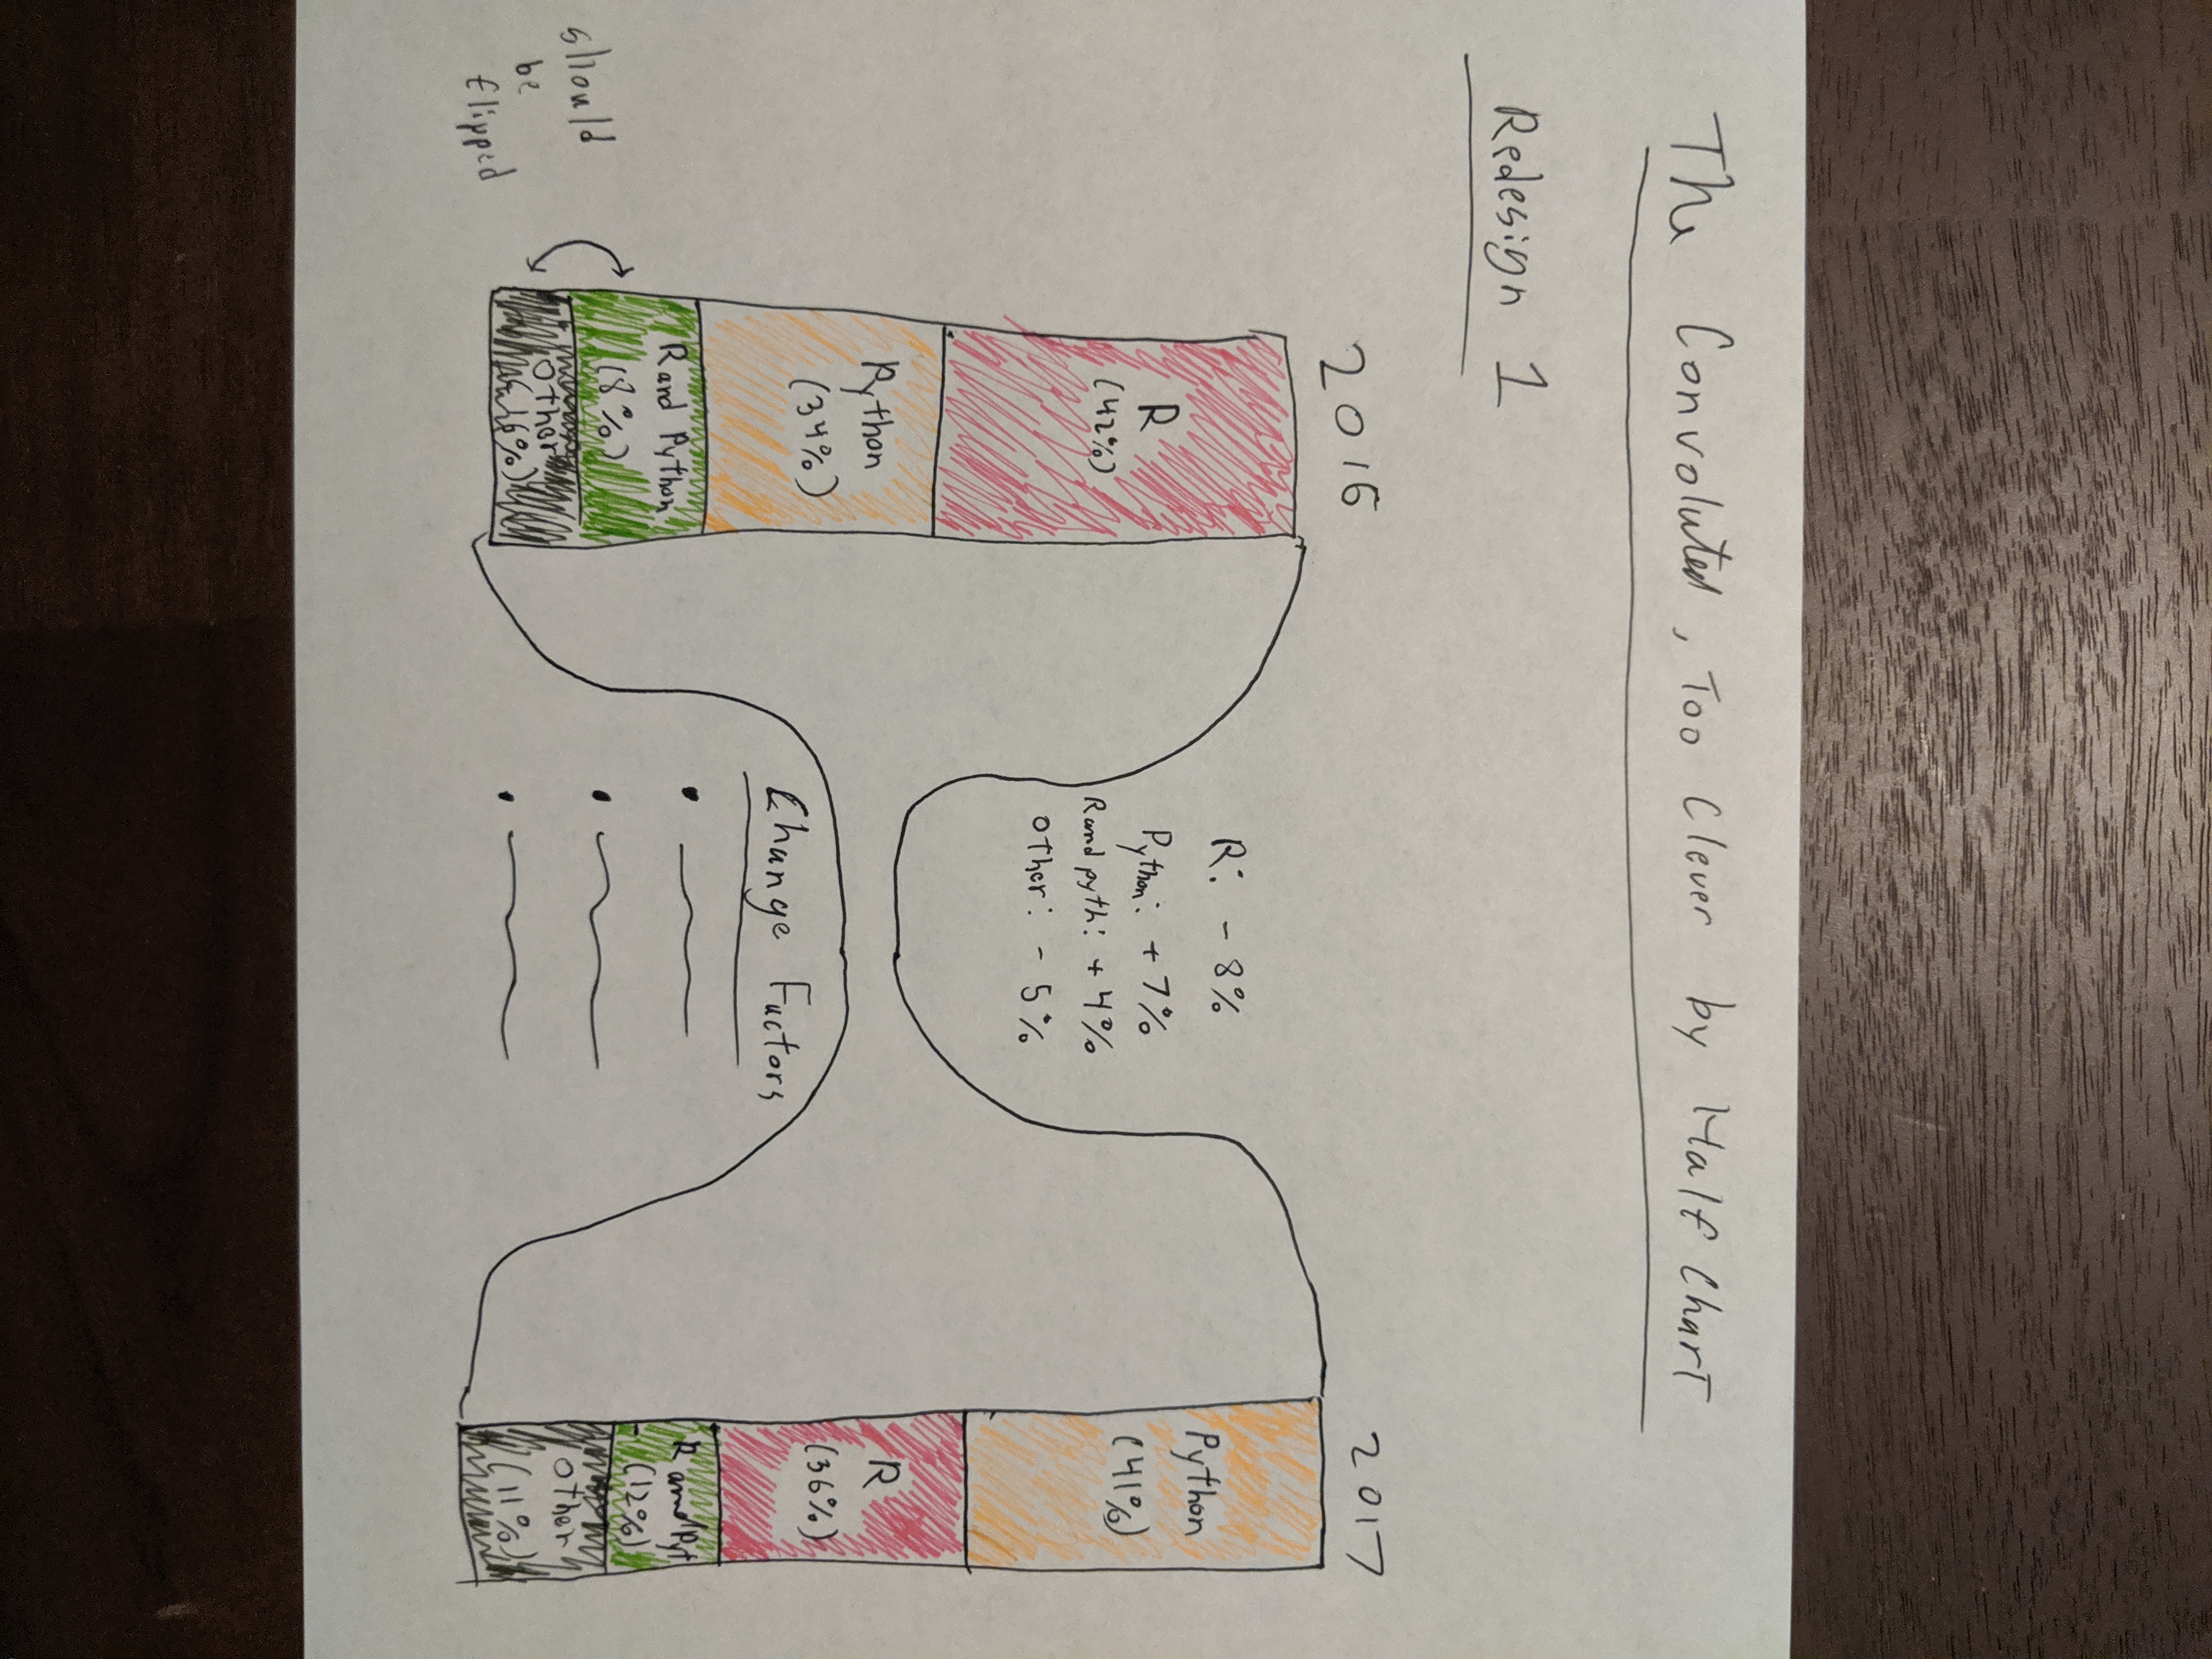 The Convoluted, Too Clever by Half Chart
Redesign 1
2016
R
(42%)
Python
(34%)
R and Python
(8%)
Other
(16%)
should
be
flipped
R: - 8%
Python: + 7%
R and pyth: + 4%
other: - 5%
Change Factors
2017
Python
(41%)
R
(36%)
R and Pyt
(12%)
Other
(11%)